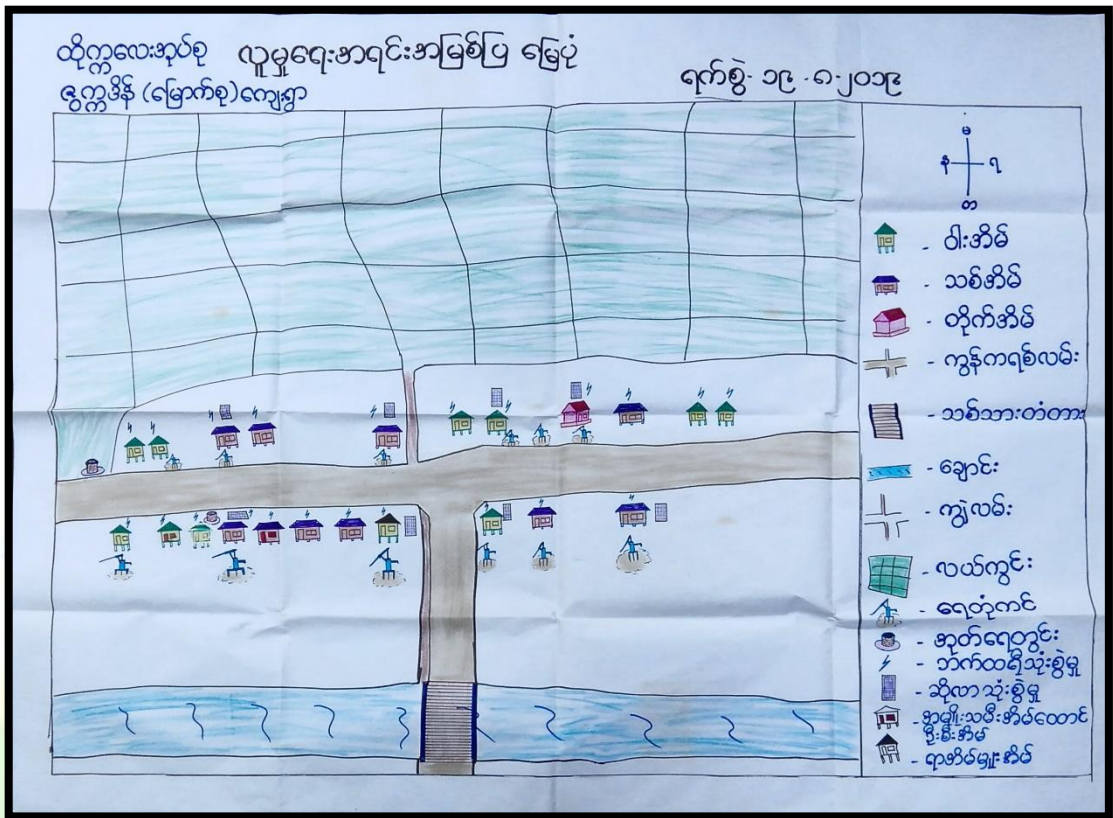 ထိုက္ကလေးအုပ်စု လူမှုရေးအရင်းအမြစ်ပြ မြေပုံ
ဇွက္ကဒိန် (မြောက်စု)ကျေးရွာ
ရက်စွဲ- ၁၉ -၈-၂၀၁၉
မ
န ရ
တ
- ဝါးအိမ်
- သစ်အိမ်
- တိုက်အိမ်
- ကွန်ကရစ်လမ်း
- သစ်သားတံတား
- ချောင်း
- ကျွဲလမ်း
- လယ်ကွင်း
- ရေတုံကင်
- အုတ်ရေတွင်း
- ဘက်ထရီသုံးစွဲမှု
- ဆိုလာသုံးစွဲမှု
- အမျိုးသမီးအိမ်ထောင်
ဦးစီးအိမ်
- ရာအိမ်မှူးအိမ်